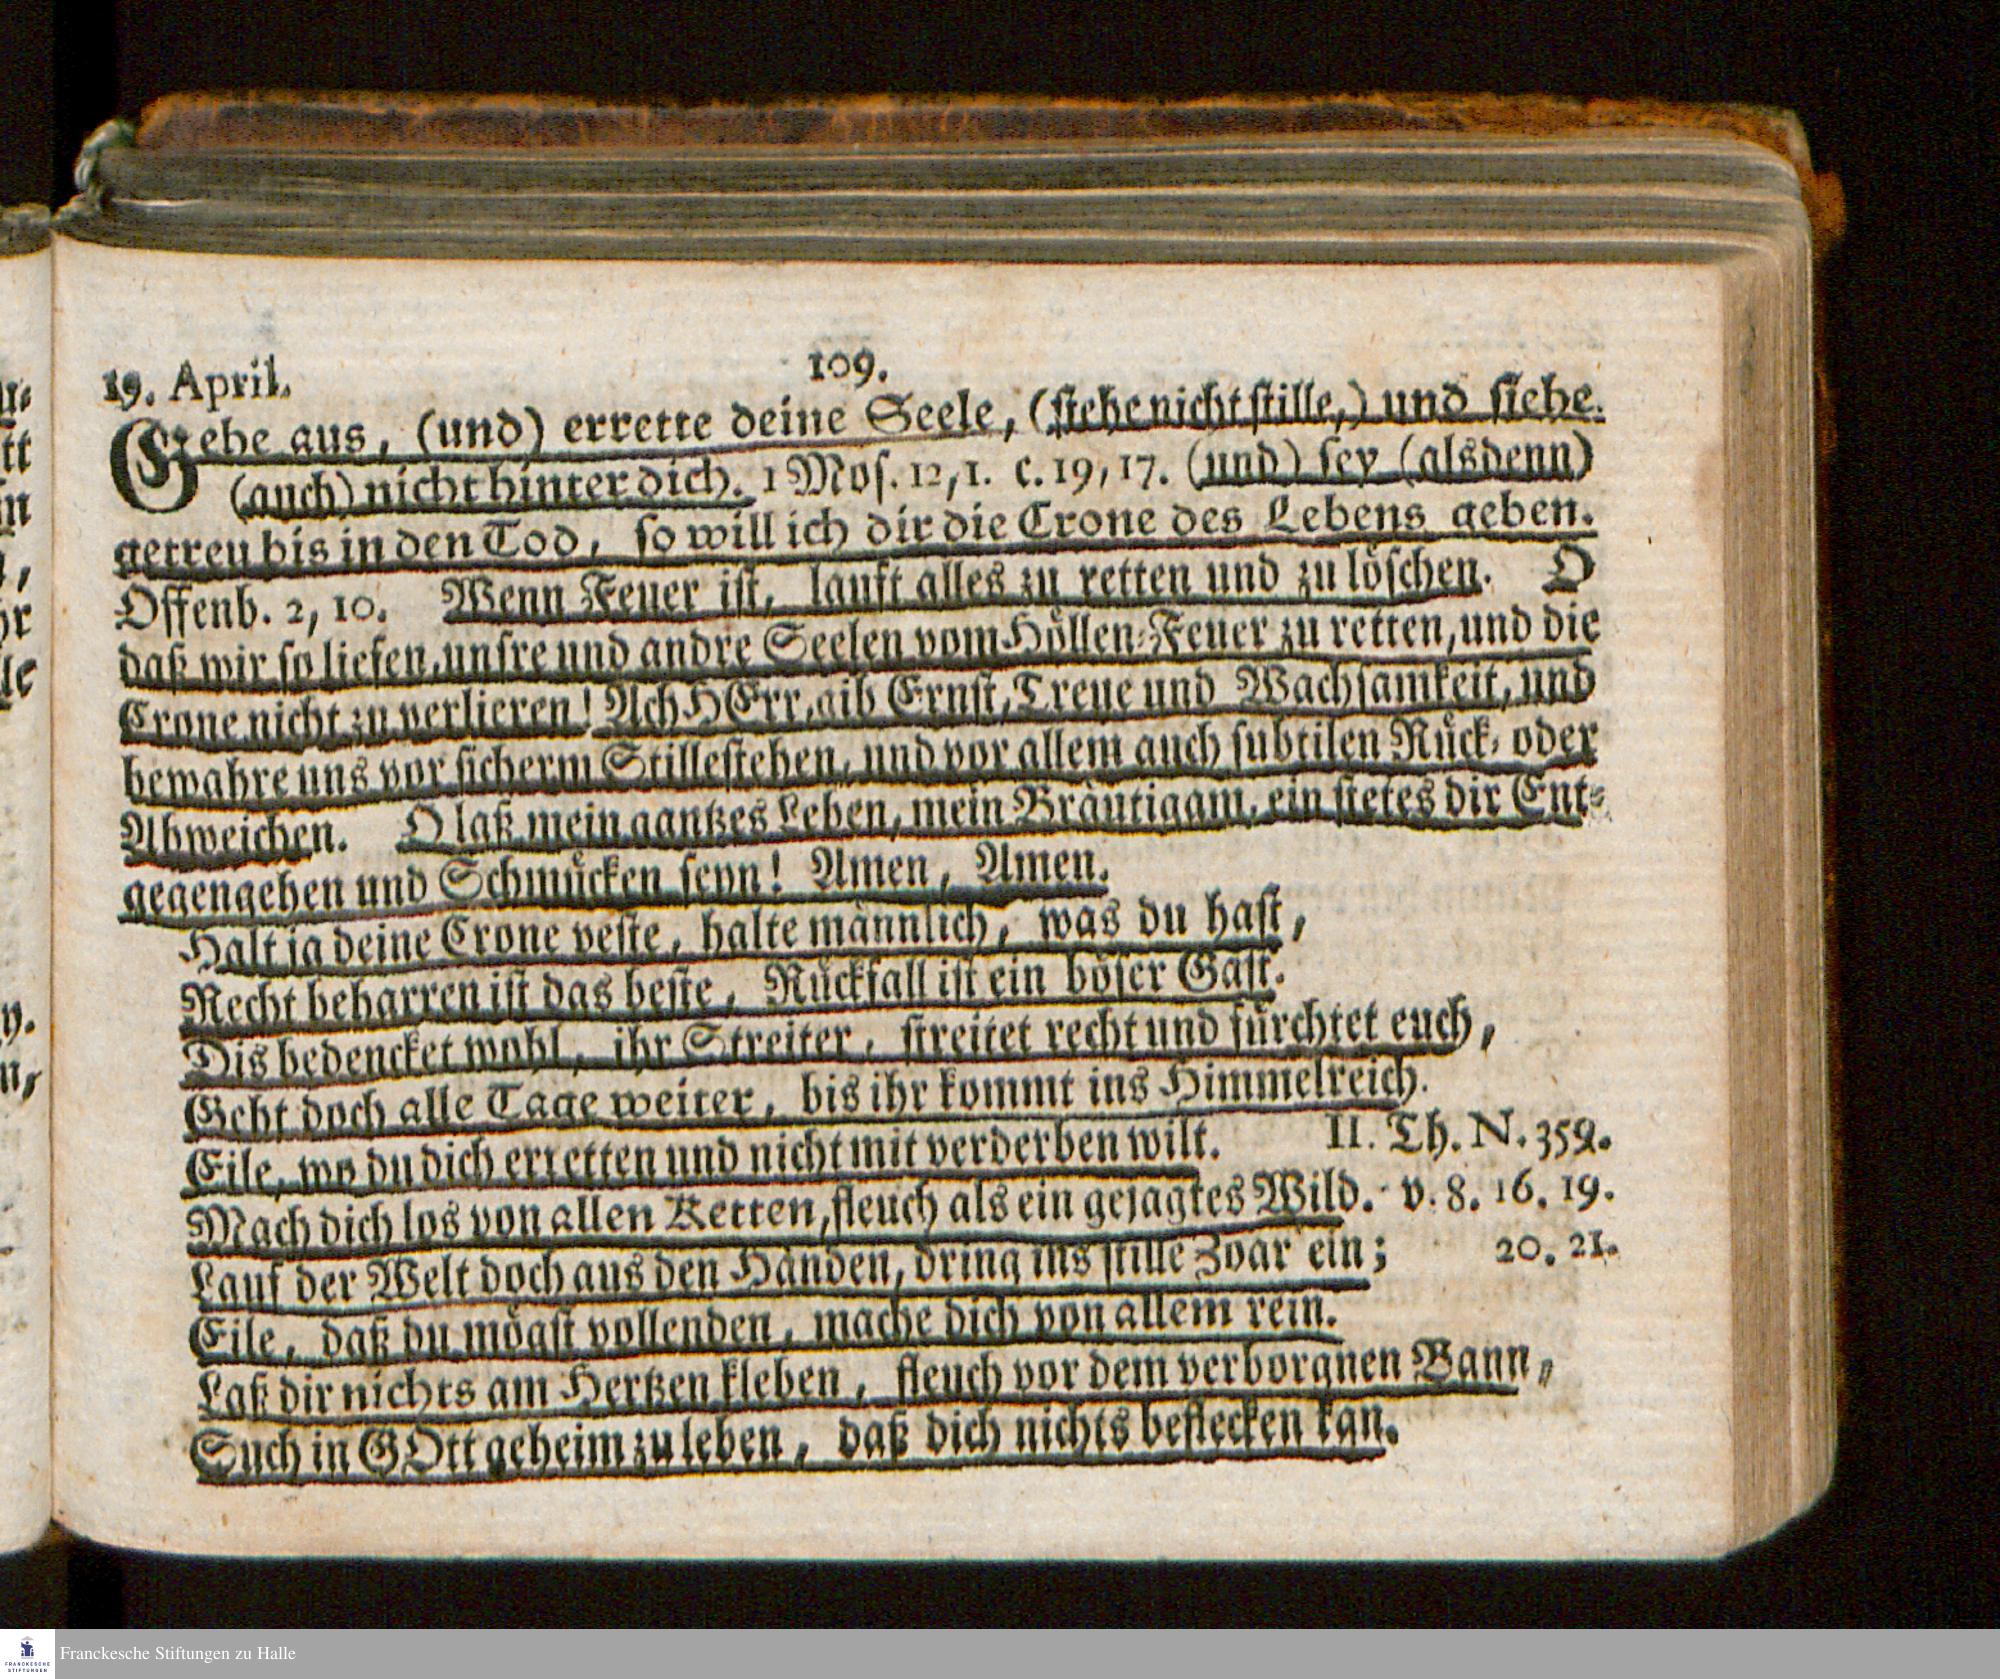 19. April.
109.
Gehe aus, (und) errette deine Seele, (stehe nicht stille,) und siehe
(auch) nicht hinter dich. 1 Mos. 12, 1. c. 19, 17. (und) sey (alsdenn)
getreu bis in den Tod, so will ich dir die Crone des Lebens geben.
Offenb. 2, 10. Wenn Feuer ist, lauft alles zu retten und zu löschen. O
daß wir so liefen, unsre und andre Seelen vom Höllen-Feuer zu retten, und die
Crone nicht zu verlieren! Ach HErr, gib Ernst, Treue und Wachsamkeit, und
bewahre uns vor sicherm Stillestehen, und vor allem auch subtilen Rück- oder
Abweichen. O laß mein gantzes Leben, mein Bräutigam, ein stetes dir Ent-
gegengehen und Schmücken seyn! Amen, Amen.
Halt ja deine Crone veste, halte männlich, was du hast,
Recht beharren ist das beste, Rückfall ist ein böser Gast.
Dis bedencket wohl, ihr Streiter, streitet recht und fürchtet euch,
Geht doch alle Tage weiter, bis ihr kommt ins Himmelreich.
Eile, wo du dich erretten und nicht mit verderben wilt. II. Th. N. 359.
Mach dich los von allen Ketten, fleuch als ein gejagtes Wild. v. 8. 16. 19.
Lauf der Welt doch aus den Händen, dring ins stille Zoar ein; 20. 21.
Eile, daß du mögst vollenden, mache dich von allem rein.
Laß dir nichts am Hertzen kleben, fleuch vor dem verborgnen Bann,
Such in GOtt geheim zu leben, daß dich nichts beflecken kan.
Franckesche Stiftungen zu Halle
FRANCKESCHE
STIFTUNGEN